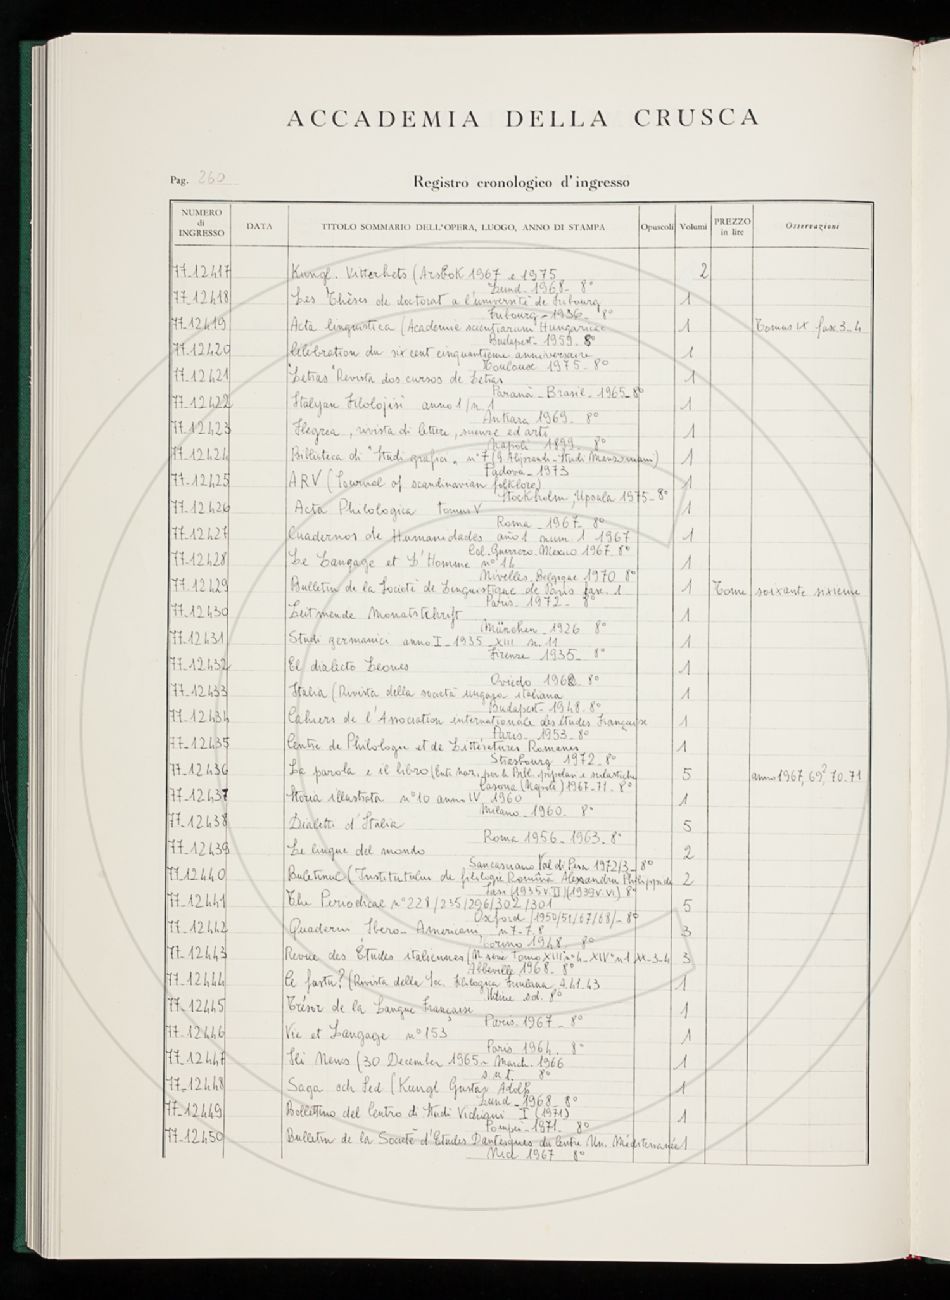 ACCADEMIA DELLA CRUSCA
Pag. 260
Registro cronologico d'ingresso
NUMERO di INGRESSO DATA TITOLO SOMMARIO DELL'OPERA, LUOGO, ANNO DI STAMPA Opuscoli Volumi PREZZO in lire Osservazioni
77-12417 Kungl. Vitterhets (Arsbok 1967 e 1975 2
Lund - 1968 - 8°
77-12418 Les Thèses de doctorat a l'université de Fribourg 1
Fribourg - 1936 - 8°
77-12419 Acta linguistica (Academie scientiarum Hungaricae 1 Tomus IX fasc 3-4
Budapest - 1959 - 8°
77-12420 Célébration du six cent cinquantieme anniversaire 1
Toulouse 1975 - 8°
77-12421 "Letras" Revista dos cursos de Letras 1
Paranà - Brasil - 1965 - 8°
77-12422 Italyan Filolojisi anno 1/n. 1 1
Ankara 1969 - 8°
77-12423 Flegrea, rivista di lettere, scienze ed arti 1
Napoli 1899 - 8°
77-12424 Biblioteca di "Studi grafia" n° 7 1
Padova - 1973
77-12425 ARV (Journal of scandinavian folklore) 1
Stockholm, Upsala 1975 - 8°
77-12426 Acta Philologica tomus V 1
Roma - 1967 - 8°
77-12427 Cuadernos de Humanidades año 1 num. 1 1967 1
Col. Guerrero - Mexico 1967 - 8°
77-12428 Le Langage et L'Homme n° 14 1
Nivelles, Belgique 1970 8°
77-12429 Bulletin de la Societè de Linguistique de Paris fasc. 1 1 Tome soixante sixieme
Paris - 1972 - 8°
77-12430 Leitmende Monatstchrift 1
München - 1926 8°
77-12431 Studi germanici anno I - 1935 - XIII n. 11 1
Firenze 1935 - 8°
77-12432 El dialecto Leones 1
Oviedo 1962 - 8°
77-12433 Italia (Rivista della società ungaro italiana 1
Budapest - 1948 - 8°
77-12434 Cahiers de l'Association internationale des études Française 1
Paris - 1953 - 8°
77-12435 Centre de Philologie et de Littératures Romanes 1
Strasbourg 1972 - 8°
77-12436 La parola e il libro (Ente Naz. per le Bibl. popolari e scolastiche 5 anno 1967, 69, 70-71
(Napoli) 1967-71 - 8°
77-12437 Storia illustrata n° 10 anno IV 1960 1
Milano - 1960 - 8°
77-12438 Dialetti d'Italia 5
Roma 1956 - 1963 - 8°
77-12439 Le lingue del mondo 2
Sancasciano Val di Pesa 1972/3 - 8°
77-12440 Buletinul (Institutului de filologie Romînă Alexandru Philippide 2
Iasi (1935 v. II) (1939 v. VI) 8°
77-12441 The Periodical n° 228/235/296/302/301 5
Oxford /1950/51/67/68/- 8°
77-12442 Quaderni Ibero-Americani, n 7-7,8 3
Torino 1948 - 8°
77-12443 Revue des Études italiennes (N serie Tomo XIII n° 4 - XIV n° 1 / XX - 3-4 3
Abbeville 1968 - 8°
77-12444 Ce fastu? (Rivista della Soc. Filologica Friulana, A. 41-43 1
Udine s.d. 8°
77-12445 Trésor de la Langue Française 1
Paris - 1967 - 8°
77-12446 Vie et Langage n° 153 1
Paris 1964 - 8°
77-12447 Sli News (30 December 1965 - March - 1966 1
s.a.t. 8°
77-12448 Saga och Sed (Kungl Gustav Adolfs 1
Lund - 1968 - 8°
77-12449 Bollettino del Centro di Studi Vichiani I (1971) 1
1971 - 8°
77-12450 Bulletin de la Société d'Etudes Dantesques du Centre Un. Méditerranée 1
Nice 1967 - 8°